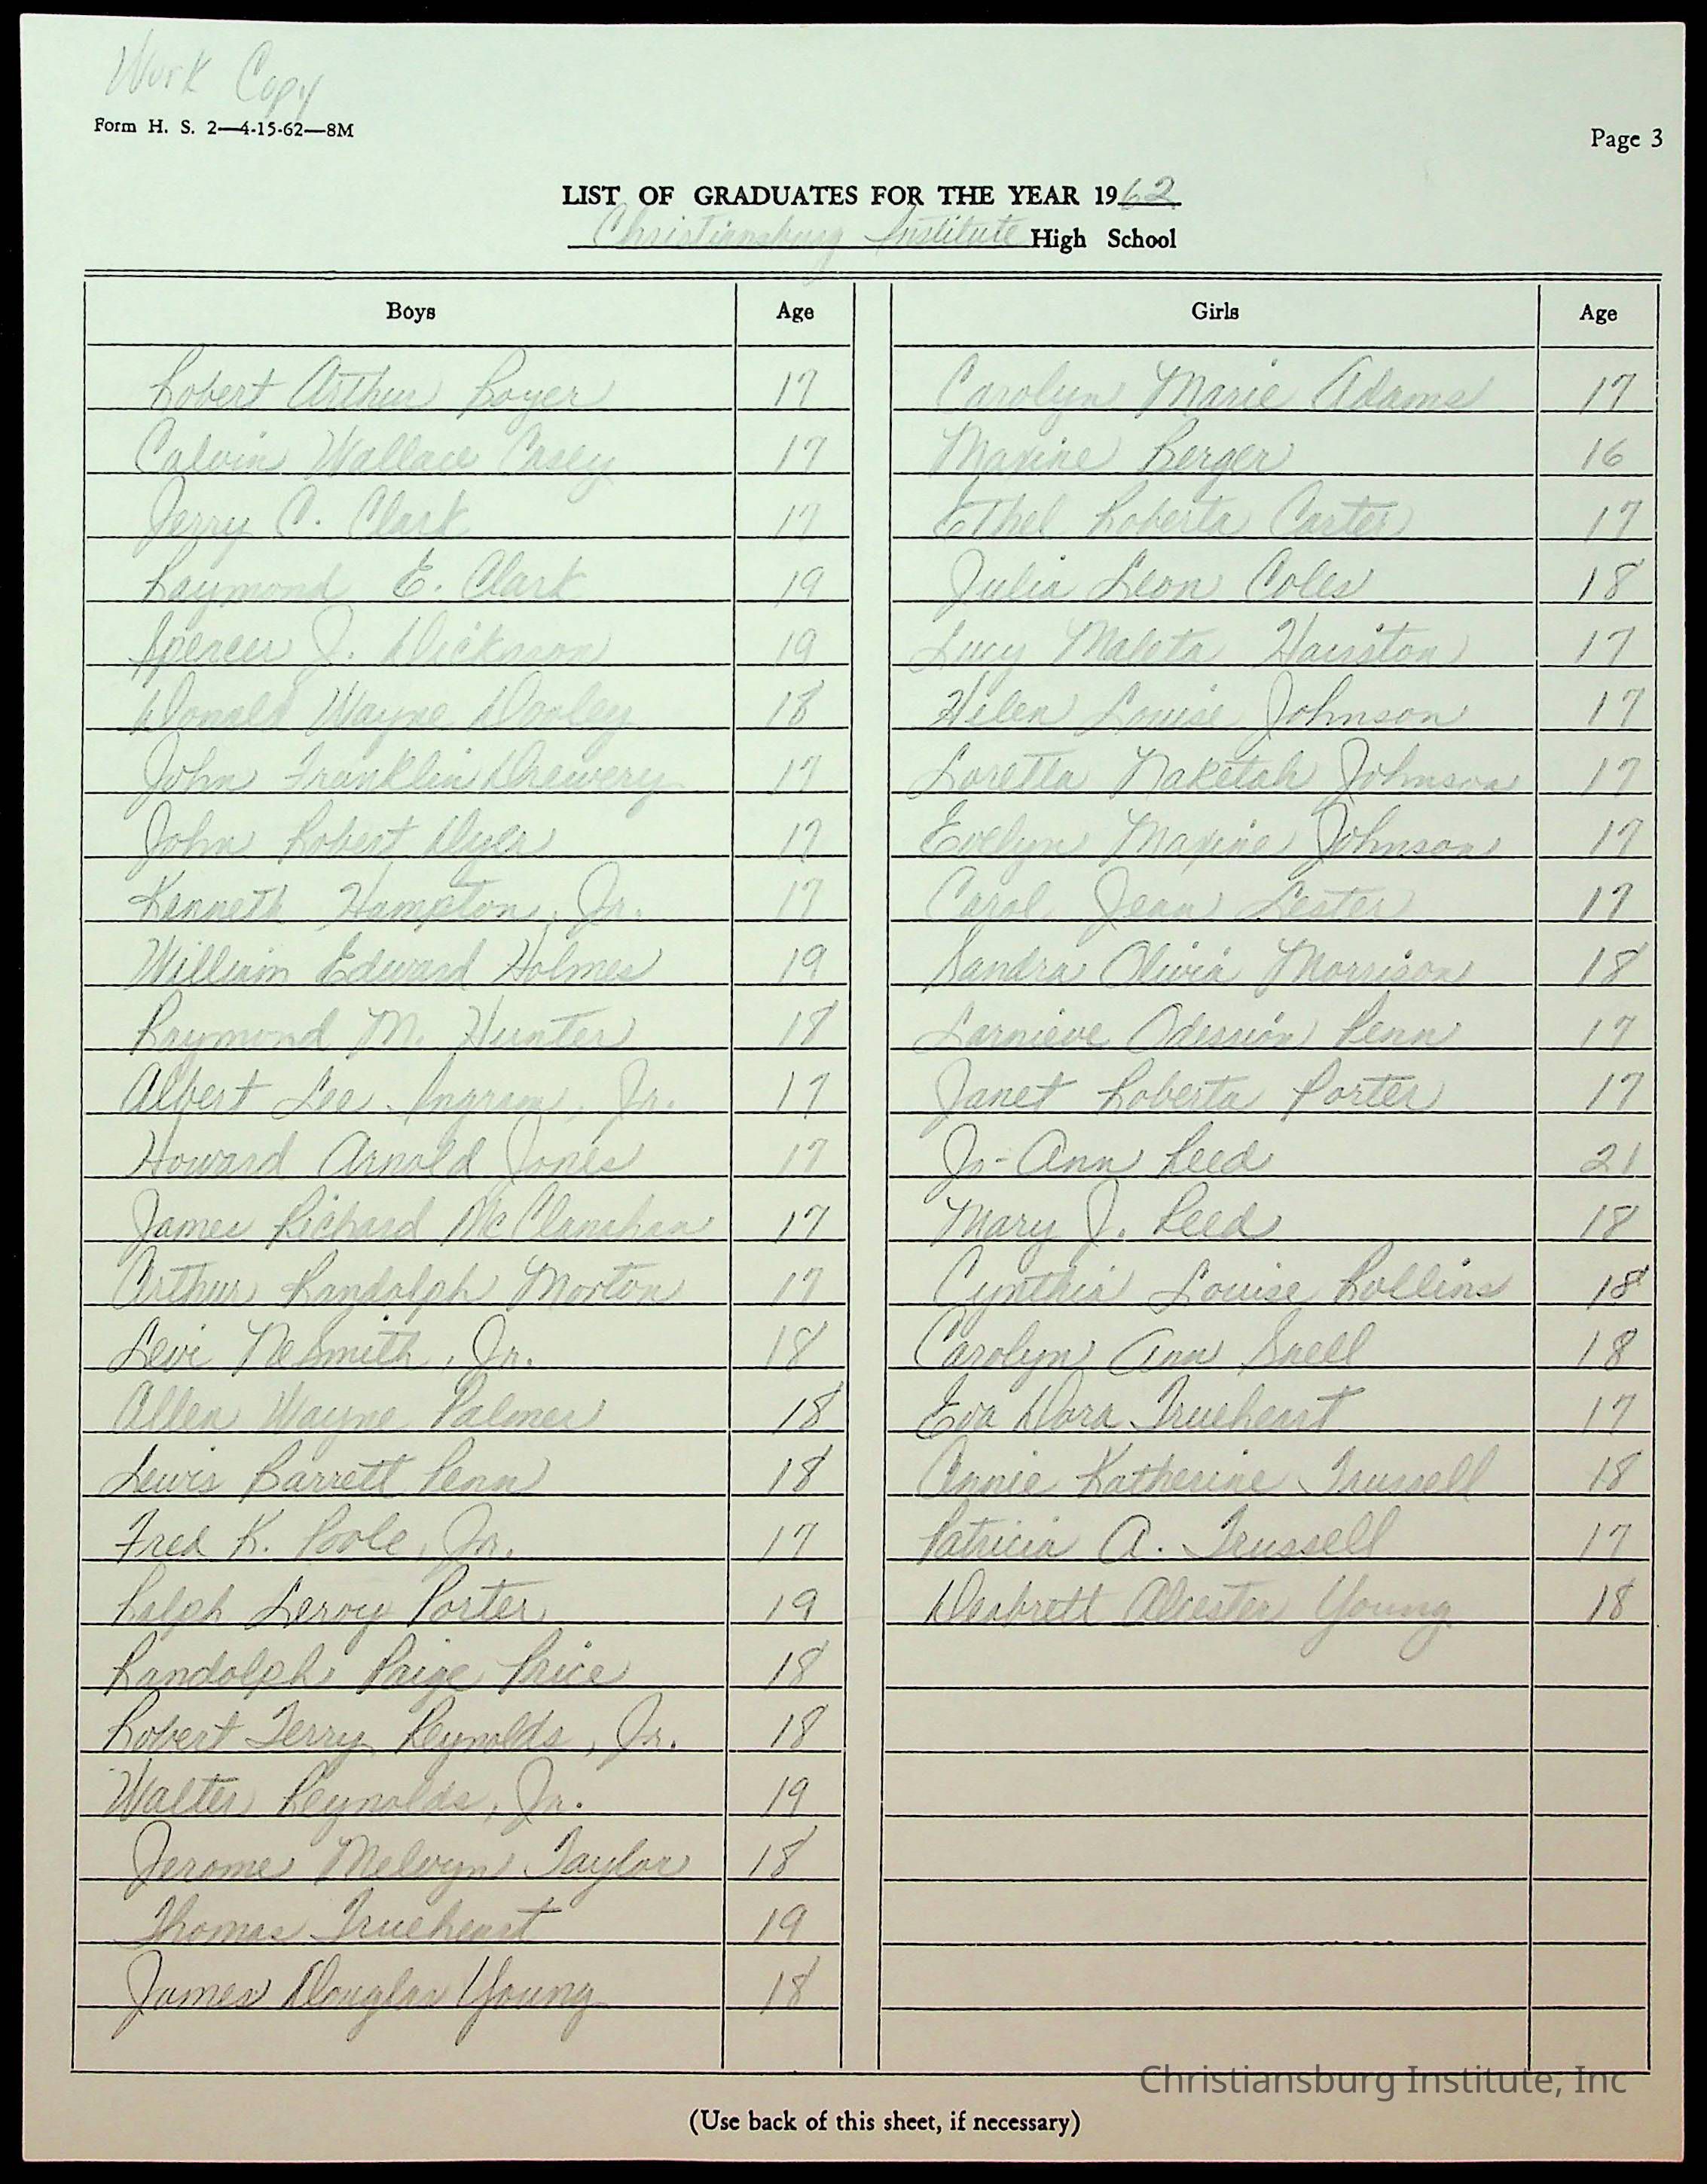 Work Copy
Form H. S. 2—4-15-62—8M
Page 3
LIST OF GRADUATES FOR THE YEAR 1962
Christiansburg Institute High School
Boys Age Girls Age
Robert Arthur Boyer 17 Carolyn Marie Adams 17
Calvin Wallace Casey 17 Maxine Berger 16
Jerry C. Clark 17 Ethel Roberta Carter 17
Raymond E. Clark 19 Julia Leon Coles 18
Spencer J. Dickerson 19 Lucy Maleta Hairston 17
Donald Wayne Dooley 18 Helen Louise Johnson 17
John Franklin Drewery 17 Loretta Naketah Johnson 17
John Robert Dyer 17 Evelyn Maxine Johnson 17
Kenneth Hampton, Jr. 17 Carol Jean Lester 17
William Edward Holmes 19 Sandra Olivia Morrison 18
Raymond M. Hunter 18 Larnieve Penn 17
Albert Lee Ingram, Jr. 17 Janet Roberta Porter 17
Howard Arnold Jones 17 Jo-Ann Reed 21
James Richard McClanahan 17 Mary J. Reed 18
Arthur Randolph Morton 17 Cynthia Louise Rollins 18
Levi NeSmith, Jr. 18 Carolyn Ann Snell 18
Allen Wayne Palmer 18 Eva Dora Trueheart 17
Lewis Barrett Penn 18 Annie Katherine Trussell 18
Fred K. Poole, Jr. 17 Patricia A. Trussell 17
Ralph Leroy Porter 19 Young 18
Randolph Paige Price 18
Robert Terry Reynolds, Jr. 18
Walter Reynolds, Jr. 19
Jerome Melvyn Taylor 18
Thomas Trueheart 19
James Douglas Young 18
Christiansburg Institute, Inc
(Use back of this sheet, if necessary)